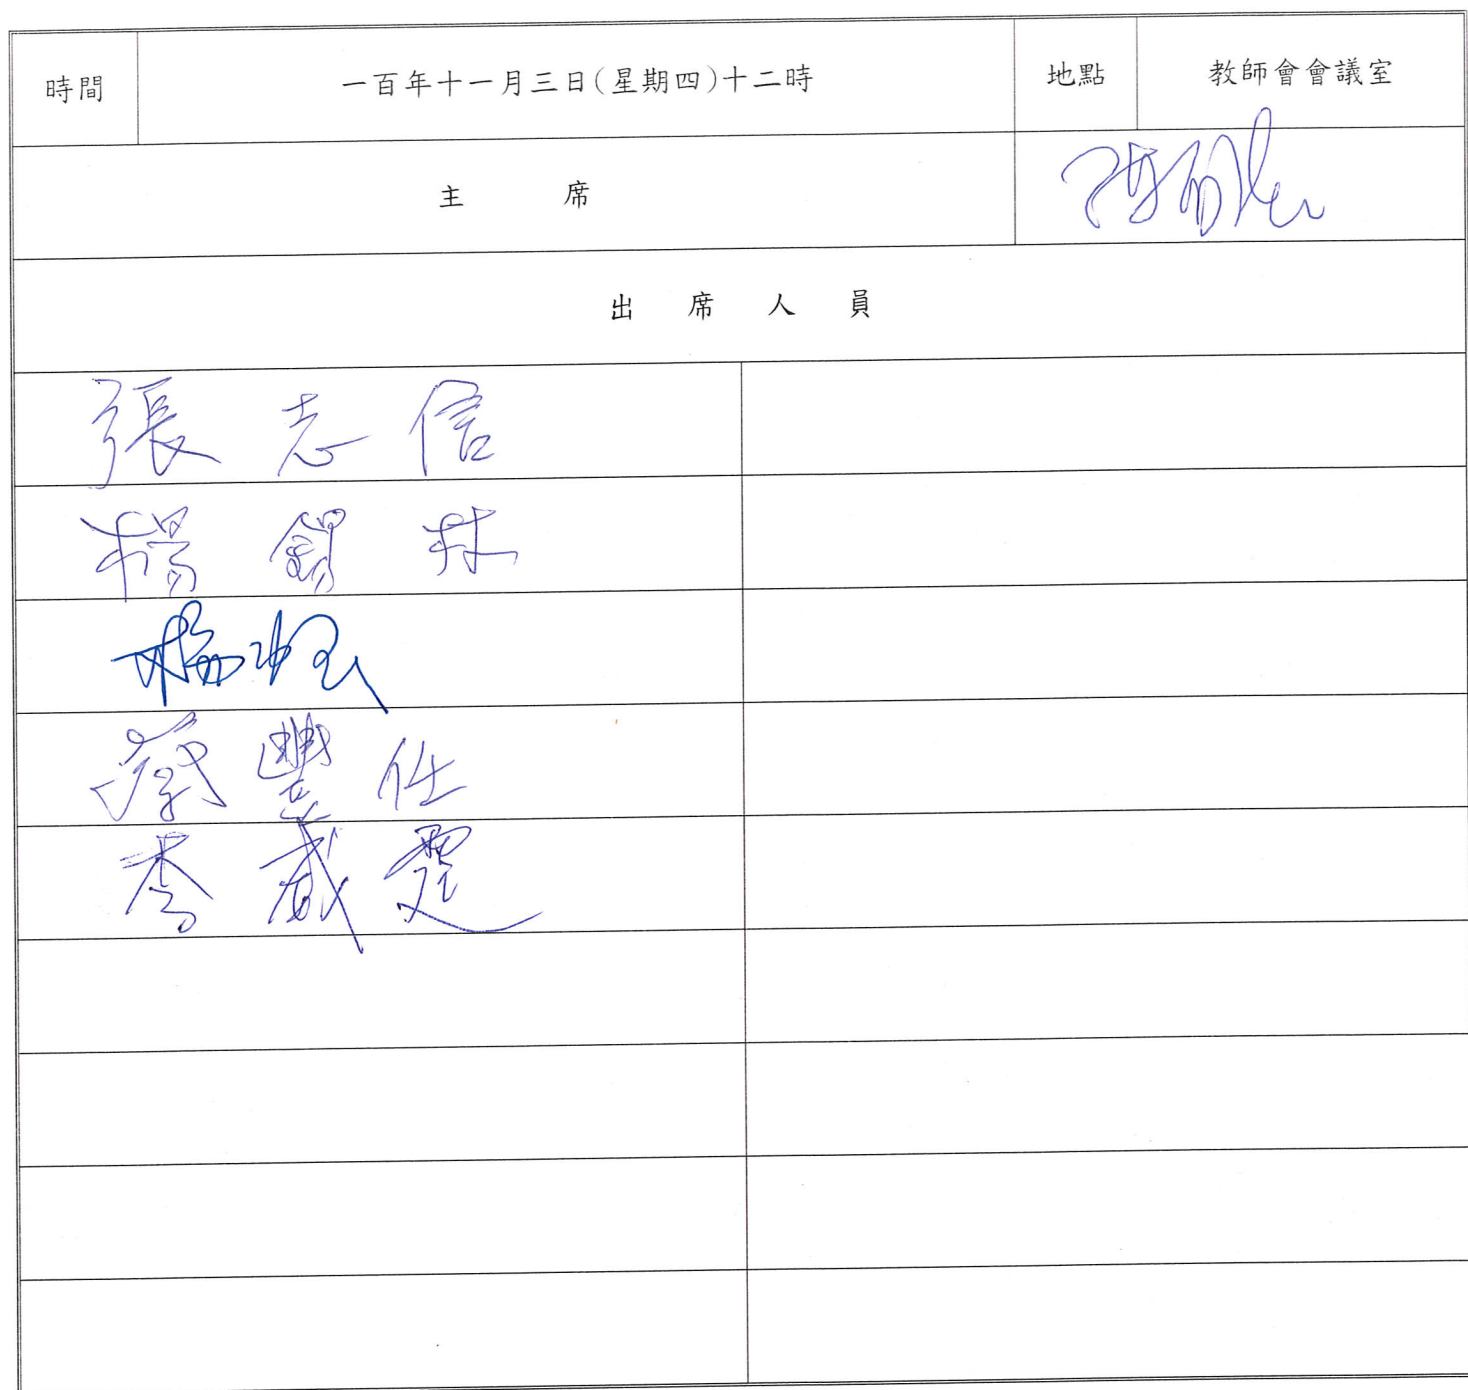 時間 一百年十一月三日(星期四)十二時 地點 教師會會議室
主 席
出 席 人 員
張志信
楊錫林
蔡豐任
李威霆